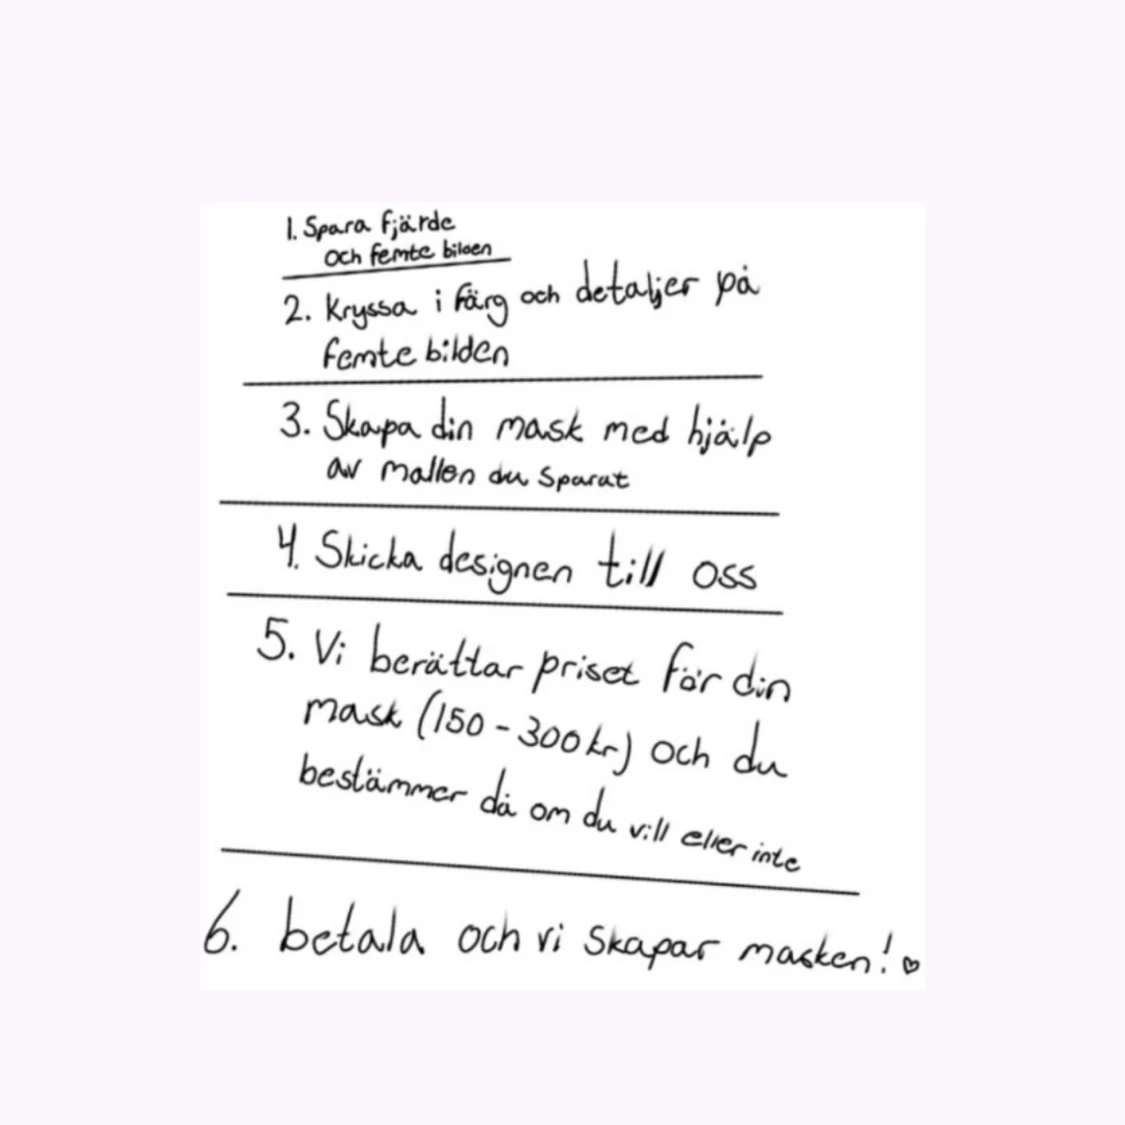 1. Spara fjärde
och femte bilden
2. Kryssa i färg och detaljer på
femte bilden
3. Skapa din mask med hjälp
av mallen du sparat
4. Skicka designen till oss
5. Vi berättar priset för din
mask (150-300kr) och du
bestämmer då om du vill eller inte
6. betala och vi skapar masken! ♡